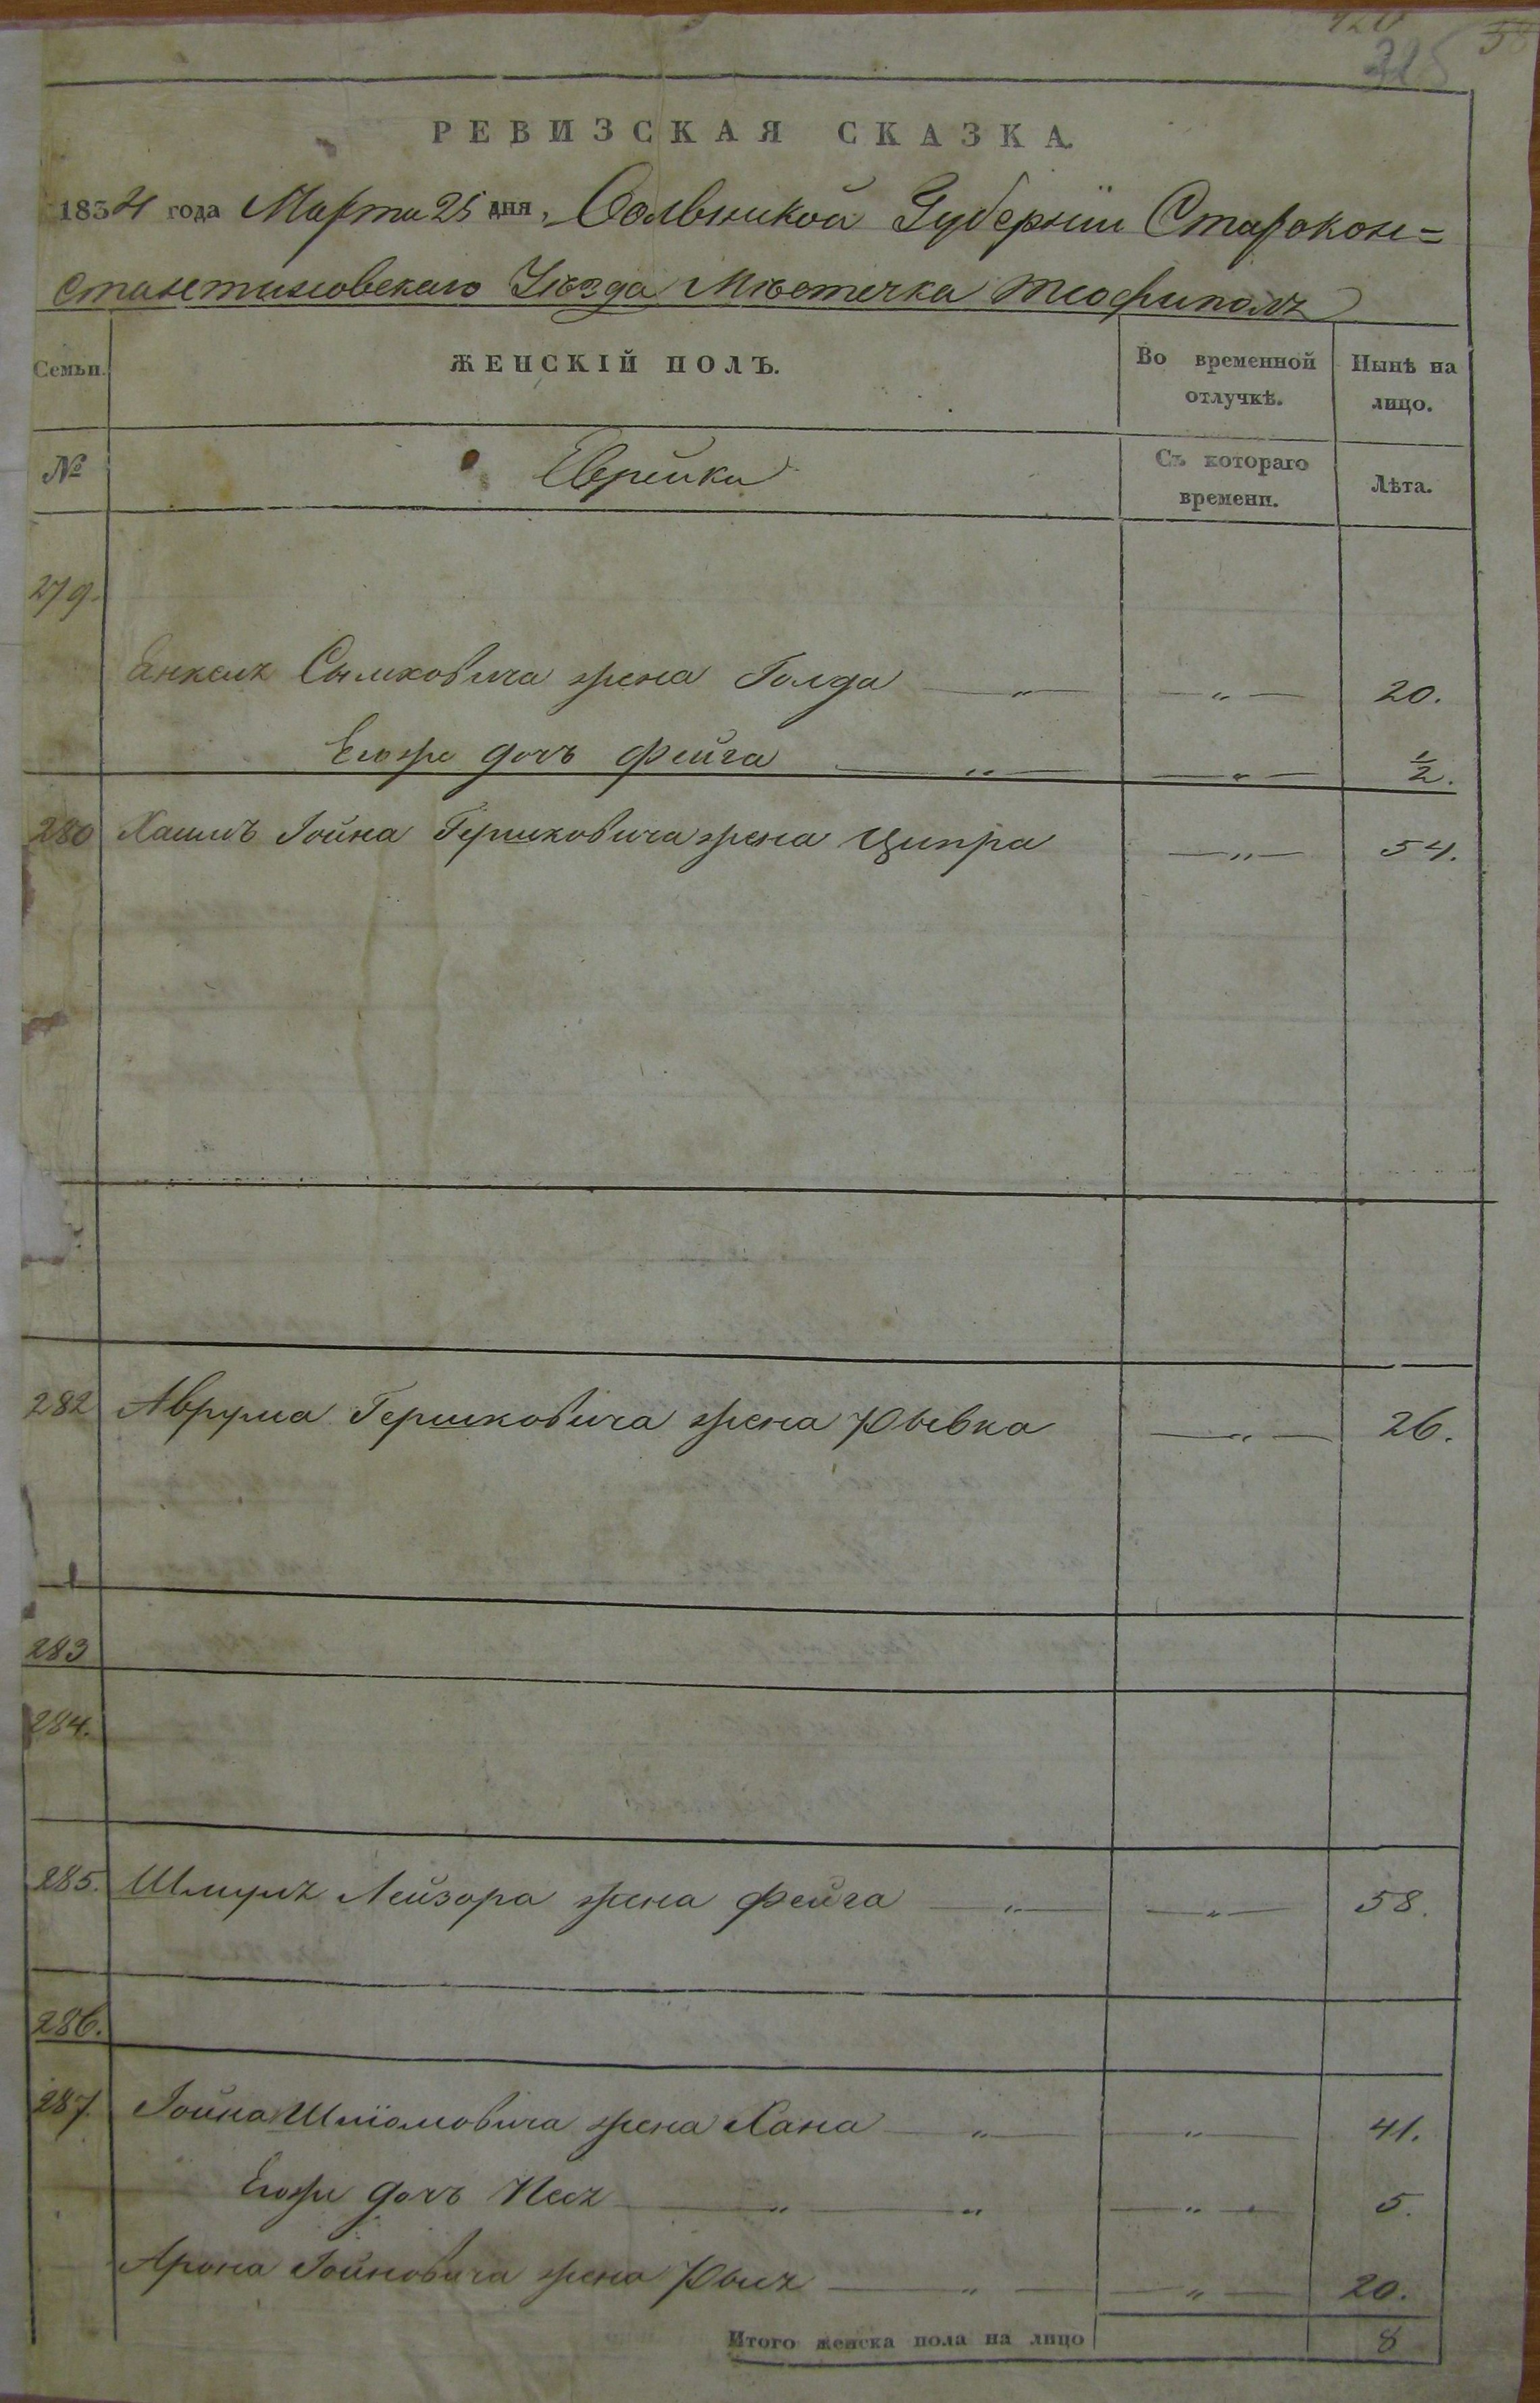 РЕВИЗСКАЯ СКАЗКА.
1834 года Марта 25 дня, Волынской Губернии Старокон=
стантиновскаго Уѣзда Мѣстечка Теофиполъ
Семьи.
ЖЕНСКІЙ ПОЛЪ.
Во временной отлучкѣ.
Нынѣ на лицо.
№
Еврейки
Съ котораго времени.
Лѣта.
279.
Янкелъ Сымховича жена Голда — „ — — „ — 20.
Егоже дочь Фейга — „ — — „ — ½.
280 Хаимъ Іойна Гершковича жена Ципра — „ — 54.
282 Аврума Гершковича жена Рывка — „ — 26.
283
284.
285. Шмулъ Лейзора жена Фейга — „ — — „ — 58.
286.
287. Іойна Шліомовича жена Хана — „ — — „ — 41.
Егоже дочь Песъ — „ — „ — „ — 5.
Арона Іойновича жена — „ — — „ — 20.
Итого женска пола на лицо 8